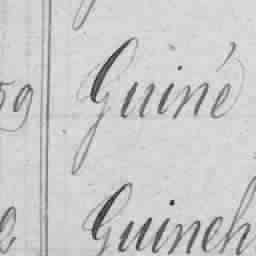 59 Guiné
Guineh